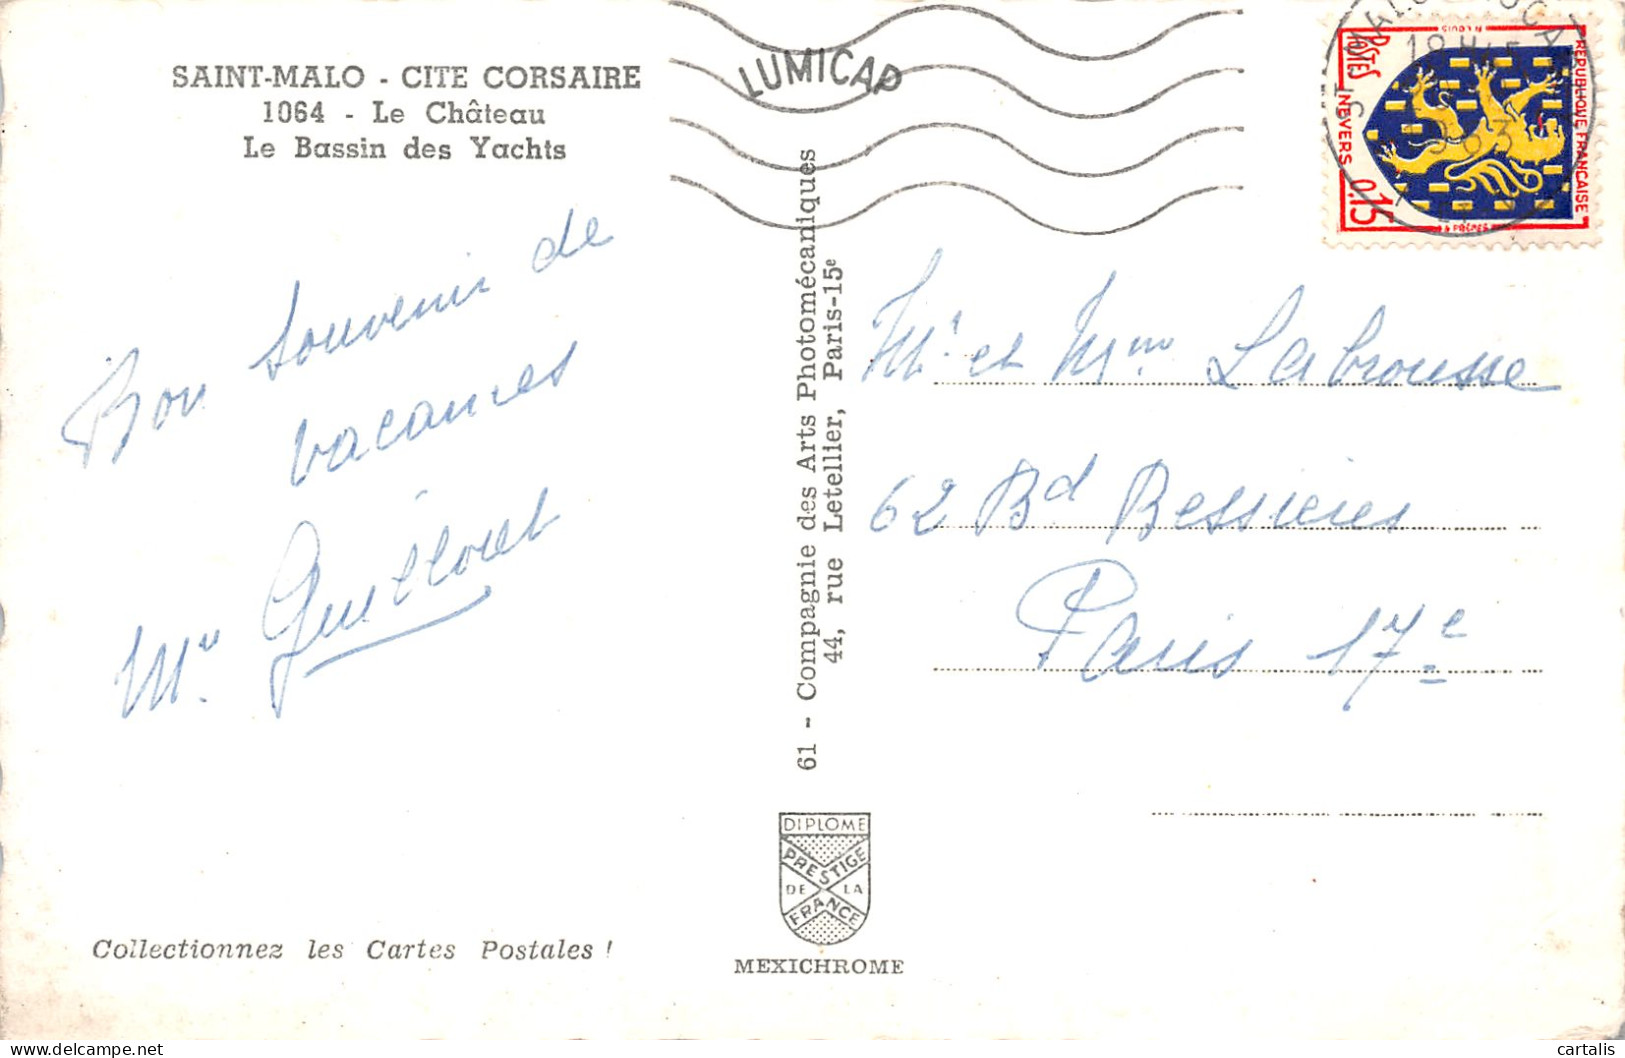 SAINT-MALO - CITE CORSAIRE
1064 - Le Château
Le Bassin des Yachts
Bon souvenir de
vacances
Guillouet
Collectionnez les Cartes Postales !
LUMICAP
61 - Compagnie des Arts Photomécaniques
44, rue Letellier, Paris-15e
DIPLOME
PRESTIGE
DE LA
FRANCE
MEXICHROME
POSTES
REPUBLIQUE FRANCAISE
NEVERS
0,15
Mr et Mme Labrousse
62 Bd Bessieres
Paris 17e
cartalis